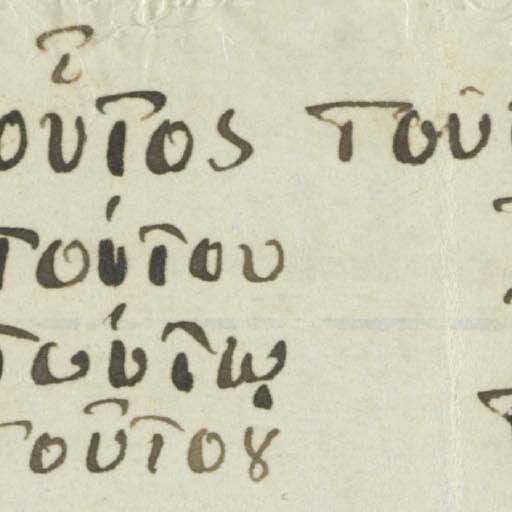 οὗτος τοῦτ
τούτου
τούτῳ
τοῦτον